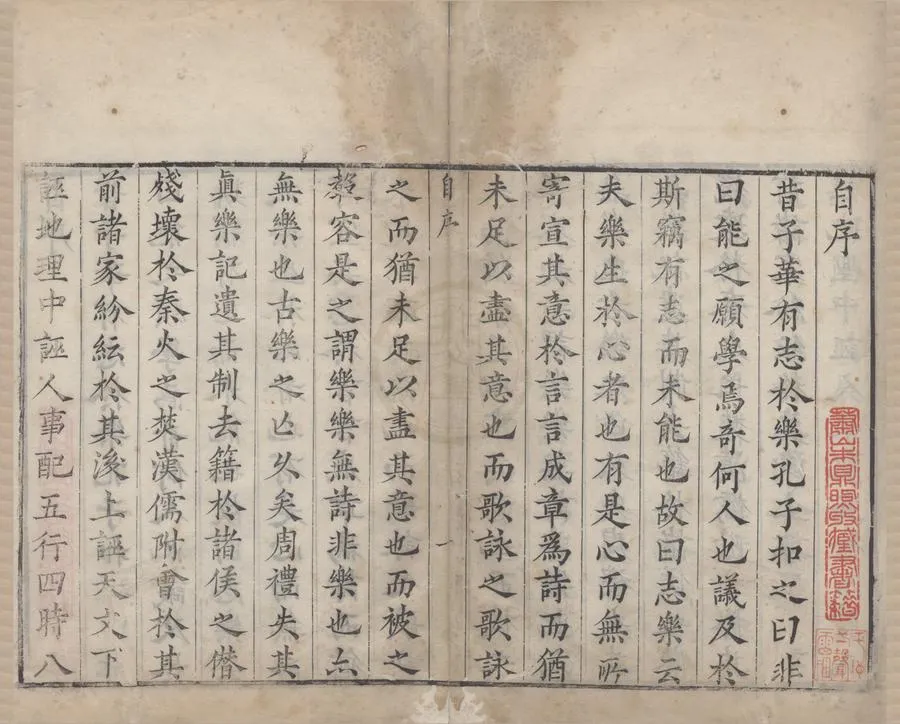 自序
昔子華有志於樂孔子扣之曰非
曰能之願學焉奇何人也議及於
斯竊有志而未能也故曰志樂云
夫樂生於心者也有是心而無所
寄宣其意於言言成章為詩而猶
未足以盡其意也而歌詠之歌詠
自序
一
之而猶未足以盡其意也而被之
聲容是之謂樂樂無詩非樂也亦
無樂也古樂之亡久矣周禮失其
眞樂記遺其制去籍於諸侯之僭
殘壞於秦火之焚漢儒附會於其
前諸家紛紜於其後上誣天文下
誣地理中誣人事配五行四時八